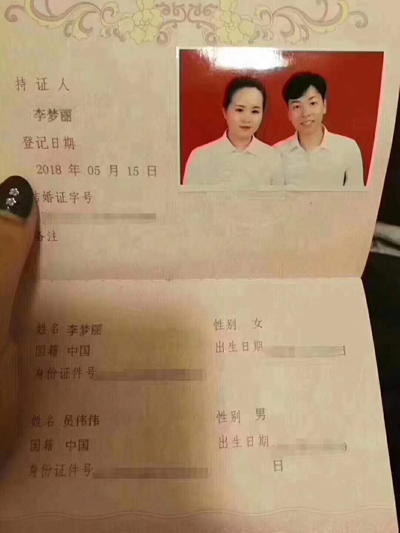 持证人
李梦丽
登记日期
2018 年 05 月 15 日
结婚证字号
备注
姓名 李梦丽 性别 女
国籍 中国 出生日期 日
身份证件号
姓名 员伟伟 性别 男
国籍 中国 出生日期
身份证件号 日